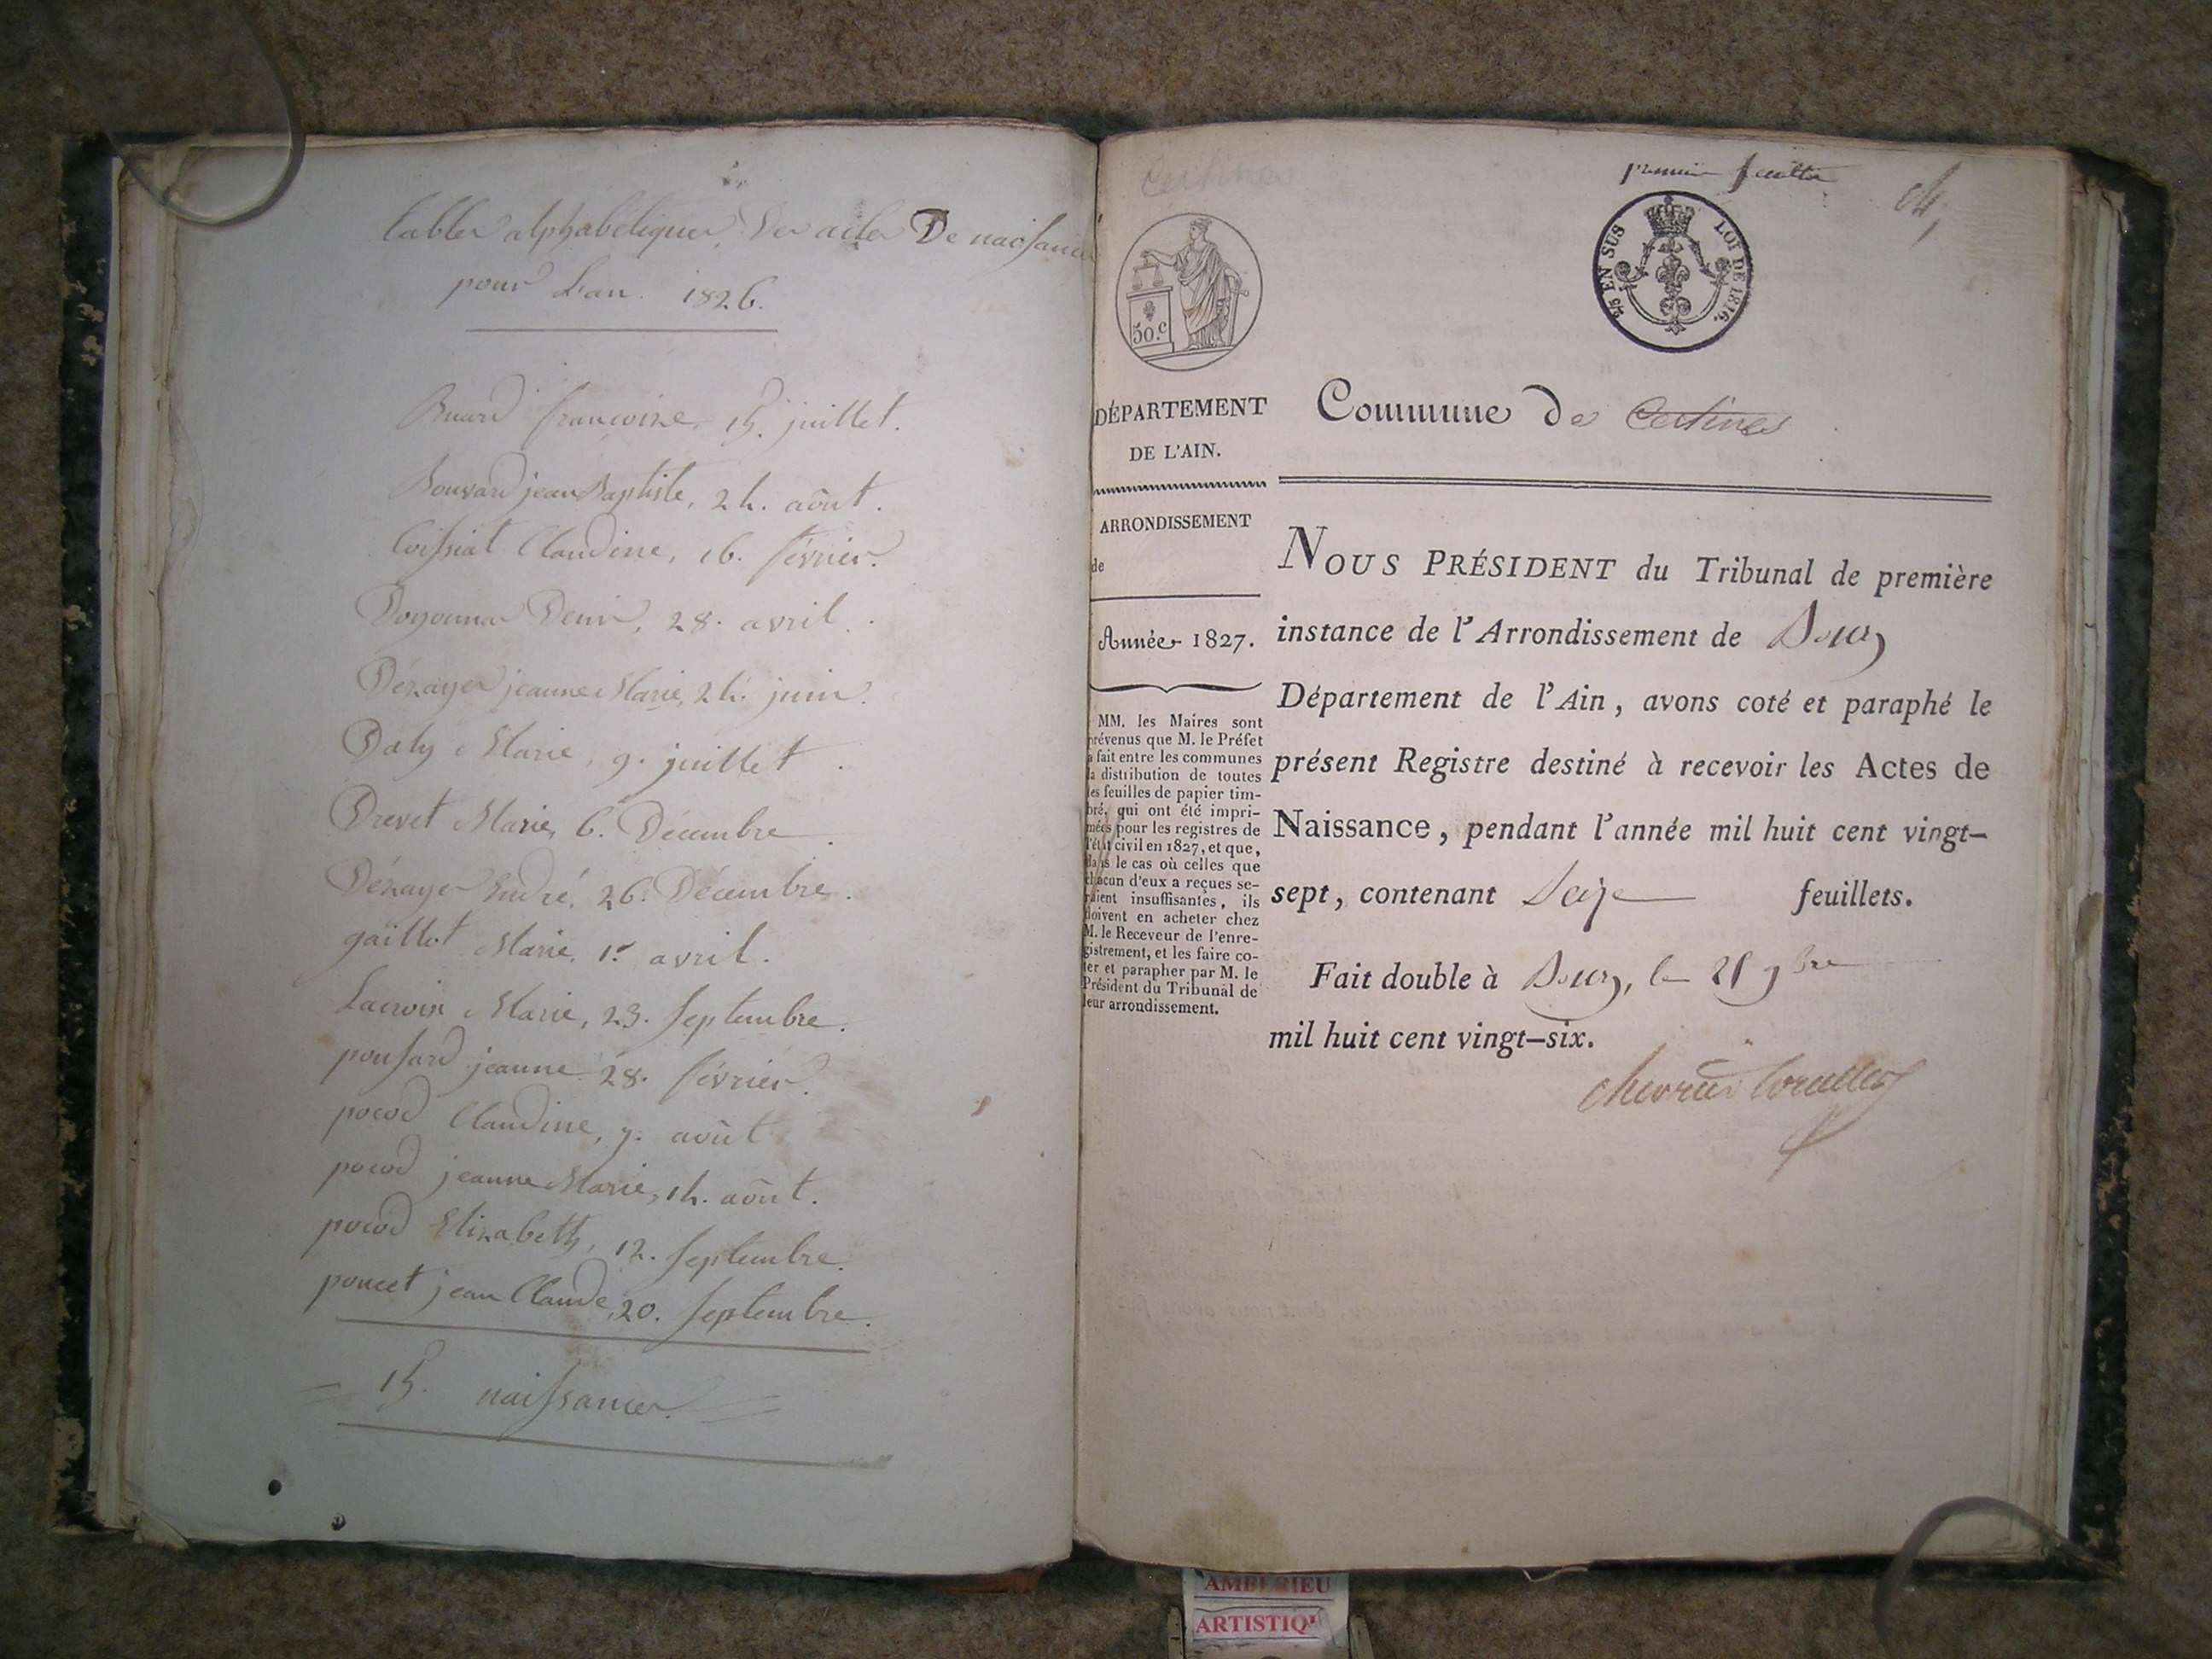 tables alphabétiques Des actes De naissances
pour L'an 1826.
Buard françoise, 15. juillet.
Bouvard jean Baptiste, 24. aôut.
Coissiat Claudine, 16. février.
Denis, 28. avril.
Dézayer jeanne Marie, 24. juin.
Daly Marie, 9. juillet.
Drevet Marie, 6. Décembre.
Dézayer André, 26. Décembre.
gaillot Marie, 1.er avril.
Lacroix Marie, 23. septembre.
ponsard jeanne 28. février.
pocod Claudine, 7. aoùt
pocod jeanne Marie, 14. aôut.
pocod Elizabeth, 12. septembre.
poncet jean Claude, 20. septembre.
= 15. naissances. =
Certines
premier feuillet
50.c
2/5 EN SUS LOI DE 1816.
DÉPARTEMENT
DE L'AIN.
ARRONDISSEMENT
de
Année 1827.
MM. les Maires sont
prévenus que M. le Préfet
a fait entre les communes
la distribution de toutes
les feuilles de papier tim-
bré, qui ont été impri-
mées pour les registres de
l'état civil en 1827, et que,
dans le cas où celles que
chacun d'eux a reçues se-
raient insuffisantes, ils
doivent en acheter chez
M. le Receveur de l'enre-
gistrement, et les faire co-
ter et parapher par M. le
Président du Tribunal de
leur arrondissement.
Commune de Certines
NOUS PRÉSIDENT du Tribunal de première
instance de l'Arrondissement de Bourg
Département de l'Ain, avons coté et paraphé le
présent Registre destiné à recevoir les Actes de
Naissance, pendant l'année mil huit cent vingt-
sept, contenant Seize feuillets.
Fait double à Bourg, le 9bre
mil huit cent vingt-six.
AMBERIEU
ARTISTIQ